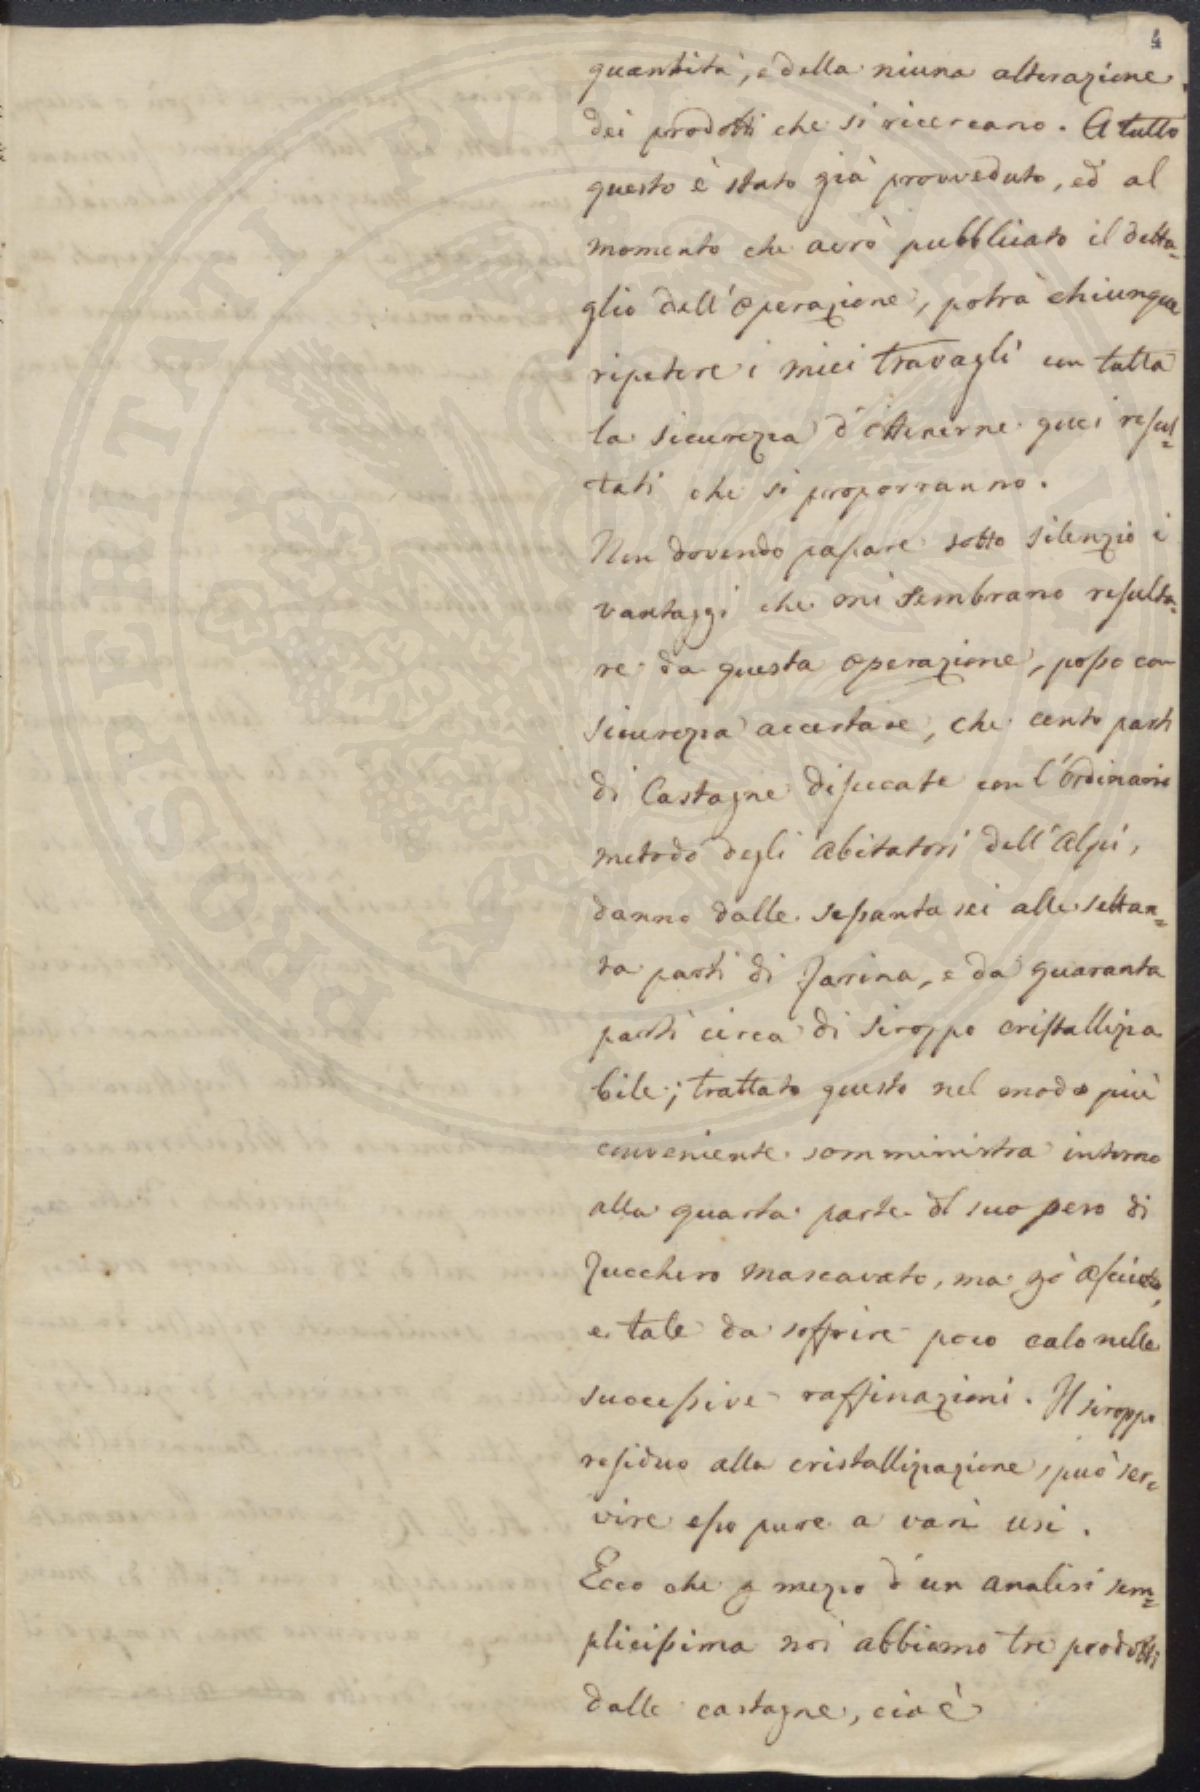 4
quantità, e della niuna alterazione
dei prodotti che si ricercano. A tutto
questo è stato già provveduto, ed al
momento che avrò pubblicato il detta=
glio dell'operazione, potrà chiunque
ripetere i miei travagli con tutta
la sicurezza d'ottenerne quei resul=
tati che si proporranno.
Non dovendo passare sotto silenzio i
vantaggi che mi sembrano resulta=
re da questa operazione, posso con
sicurezza accertare, che cento parti
di Castagne disseccate con l'ordinario
metodo degli abitatori dell'alpi,
danno dalle sessanta sei alle settan=
ta parti di farina, e da quaranta
parti circa di siroppo cristallizza
bile; trattato questo nel modo più
conveniente somministra intorno
alla quarta parte del suo peso di
Zucchero mascavato, ma già asciutto,
e tale da soffrire poco calo nelle
successive raffinazioni. Il siroppo
residuo alla cristallizzazione, può ser=
vire esso pure a vari usi.
Ecco che p mezzo d'un analisi sem=
plicissima noi abbiamo tre prodotti
dalle castagne, cioè
PROSPERITATI PUBLICAE